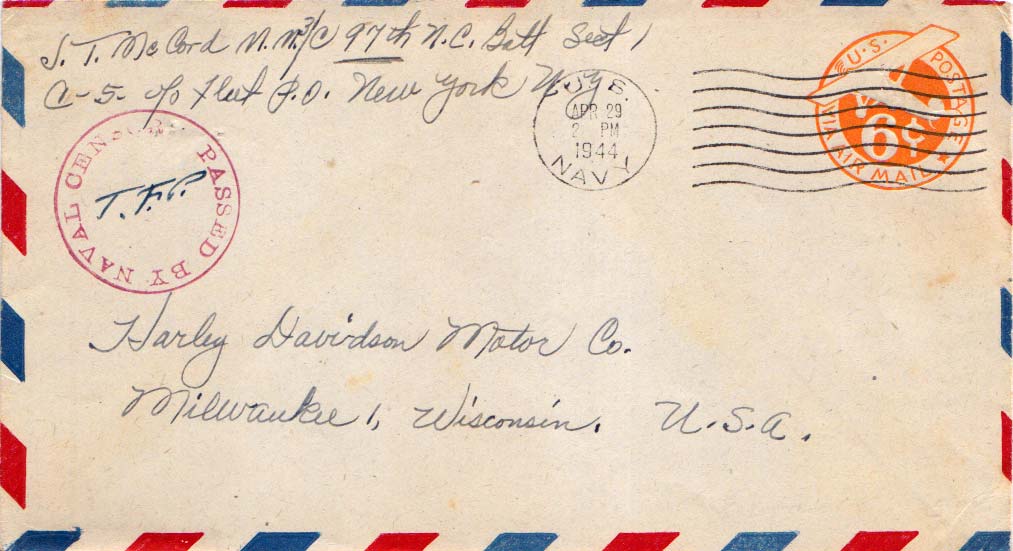 S. T. McCord M.M.3/C 97th N.C. Batt Sect 1
C-5- c/o Fleet P.O. New York N.Y.
U.S.
APR 29
2 PM
1944
NAVY
U.S. POSTAGE
6¢
VIA AIR MAIL
PASSED BY NAVAL CENSOR
T.F.P.
Harley Davidson Motor Co.
Milwaukee 1, Wisconsin. U.S.A.